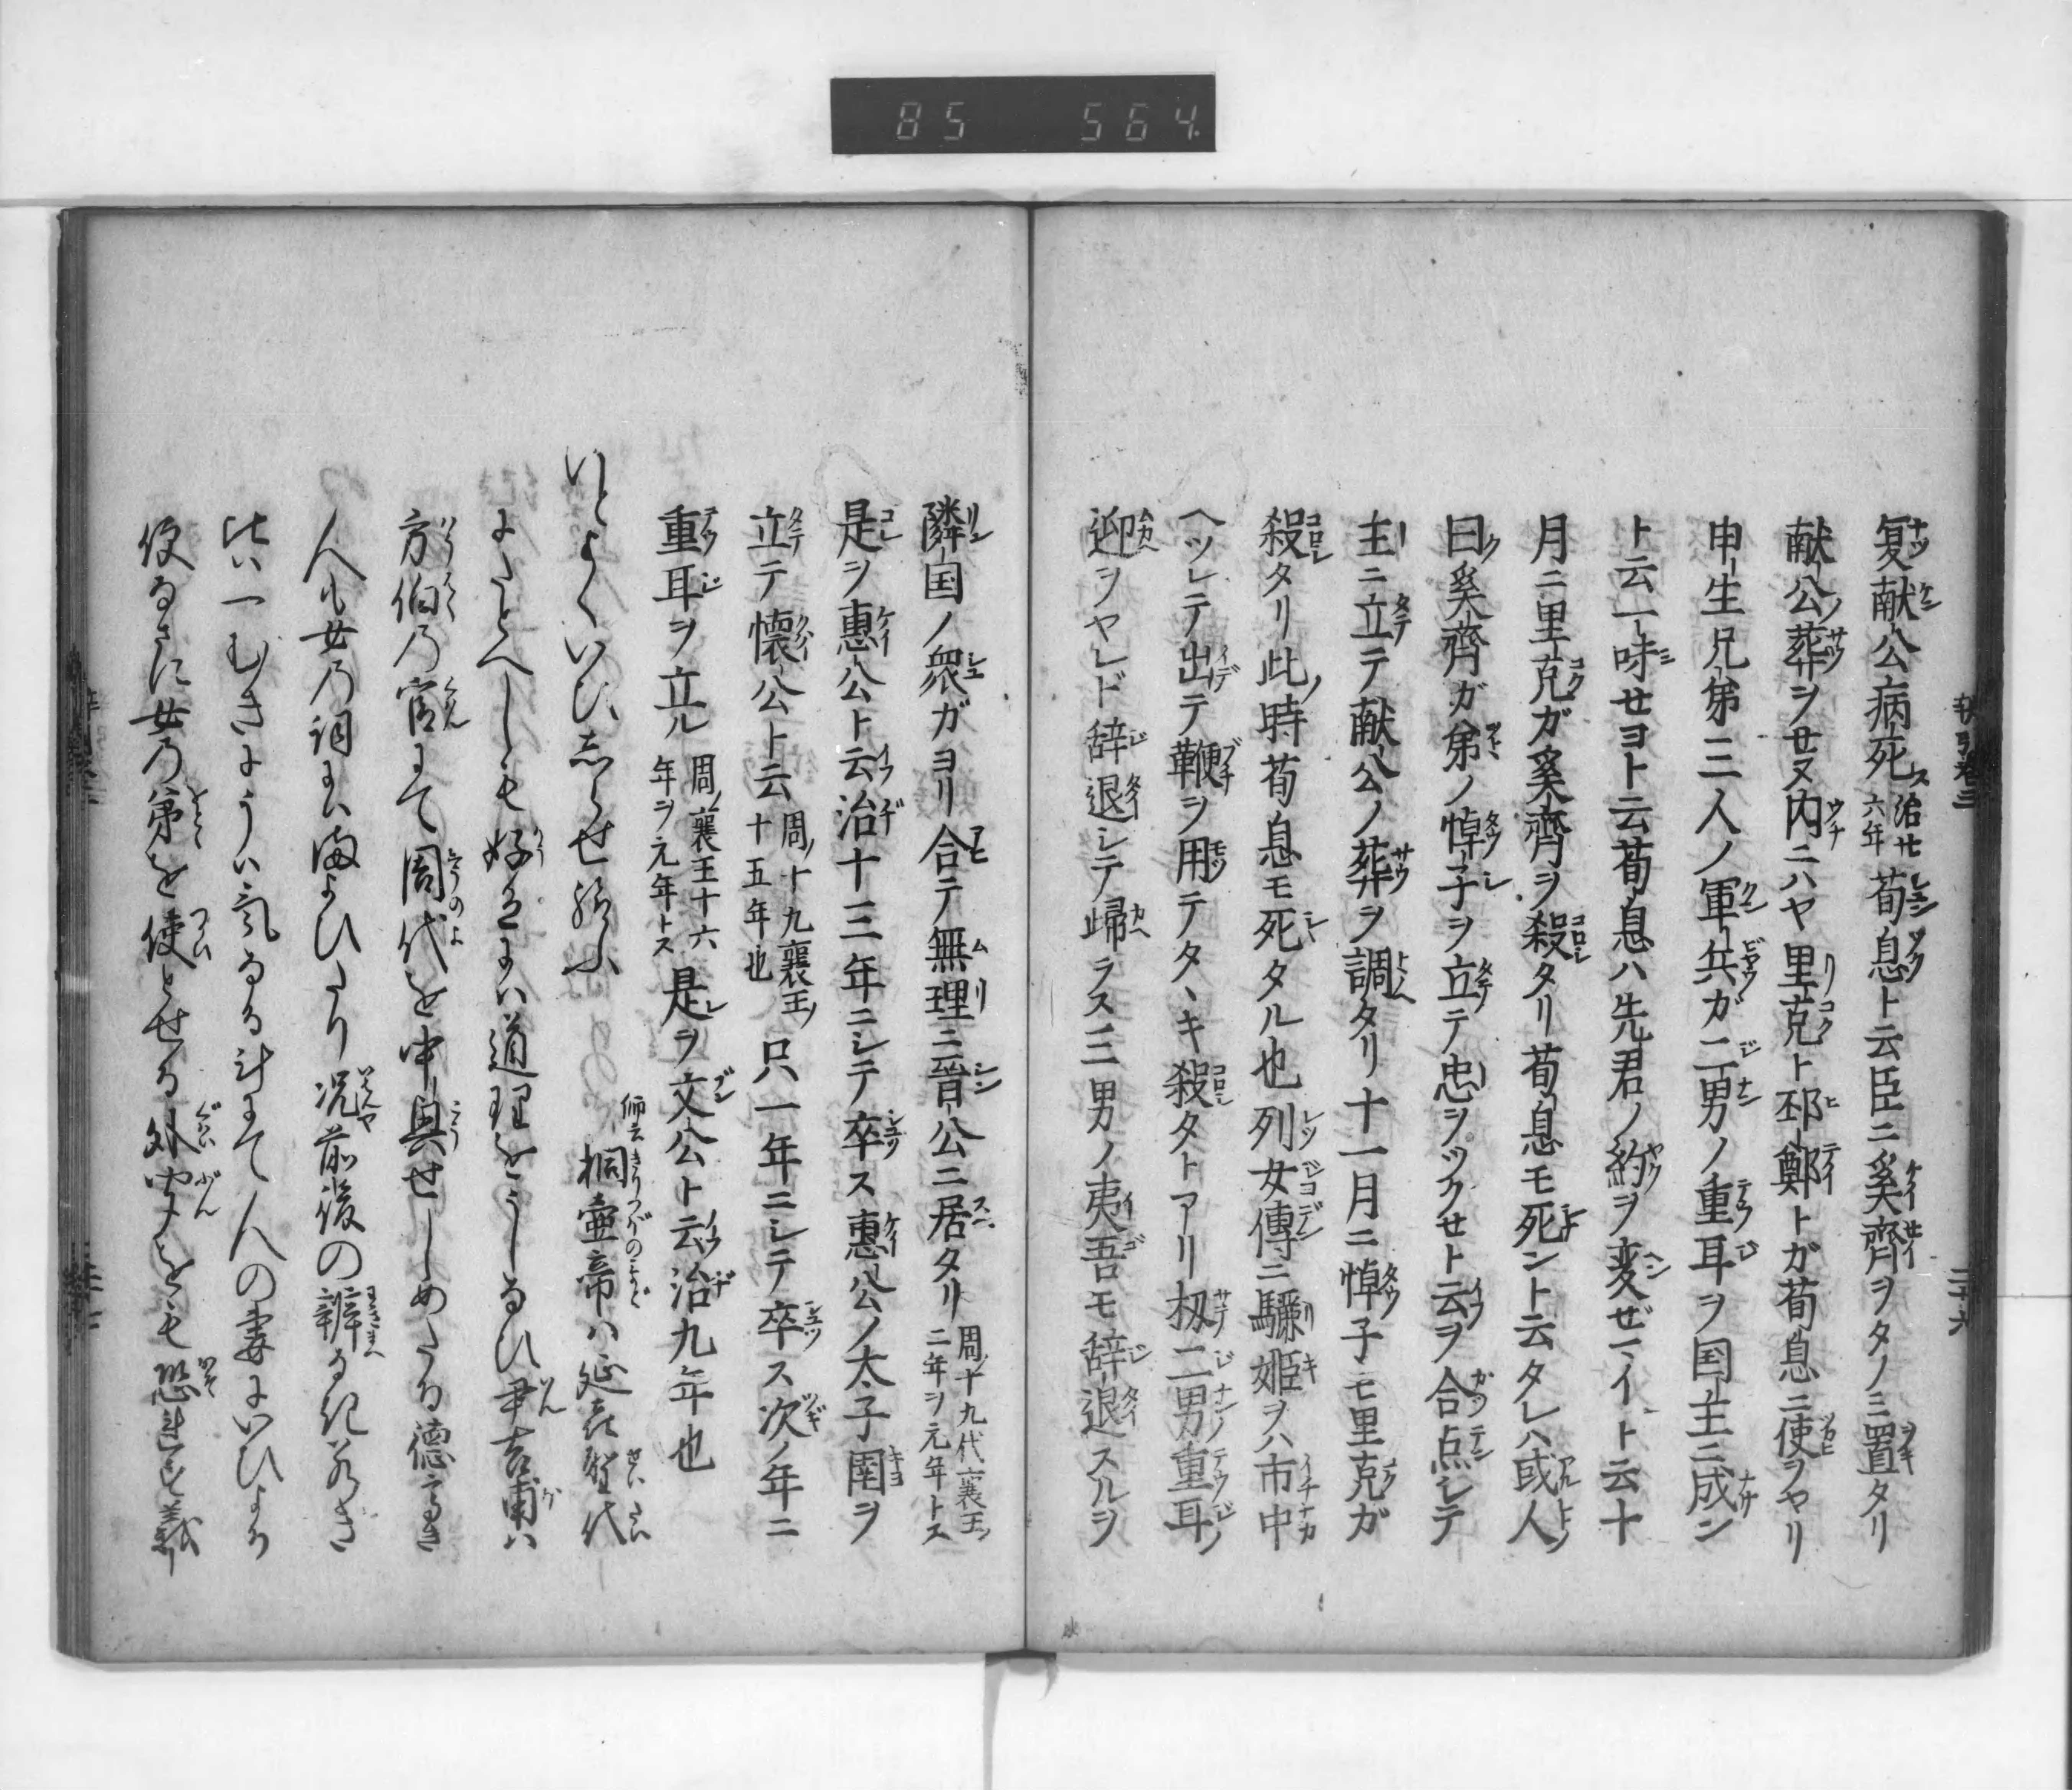 85 564
夏献公病死ス治廿六年荀息ト云臣ニ奚齊ヲタノミ置タリ
献公ノ葬ヲセヌ内ニハヤ里克ト邳鄭トガ荀息ニ使ヲヤリ
申生兄弟三人ノ軍兵ガ二男ノ重耳ヲ国主ニ成ン
ト云一味セヨト云荀息ハ先君ノ約ヲ変ゼマイト云十
月ニ里克ガ奚齊ヲ殺タリ荀息モ死ント云タレハ或人
曰奚齊ガ弟ノ悼子ヲ立テ忠ヲツクセト云ヲ合点シテ
主ニ立テ献公ノ葬ヲ調タリ十一月ニ悼子モ里克ガ
殺タリ此時荀息モ死タル也列女傳ニ驪姫ヲハ市中
ヘツレテ出テ鞭ヲ用テタヽキ殺タトアリ扨二男重耳ノ
迎ヲヤレド辞退シテ歸ラス三男ノ夷吾モ辞退スルヲ
隣国ノ衆ガヨリ合テ無理ニ晋公ニ居タリ周ノ十九代襄王ノ二年ヲ元年トス
是ヲ惠公ト云治十三年ニシテ卒ス惠公ノ太子圉ヲ
立テ懷公ト云周ノ十九襄王ノ十五年也只一年ニシテ卒ス次ノ年ニ
重耳ヲ立ル周ノ襄王十六年ヲ元年トス是ヲ文公ト云治九年也
いとよくいひしらせ給ふ師云桐壷帝ハ延喜聖代
によそへしも好色には道理をうしなひ尹吉甫ハ
方伯乃官にて周代を中興せしめたる徳高き
人も女乃詞にハまよひたり况前後の辨なき若き
比ハ一むきにうハ気なる計にて人の妻にいひより
便なきに女乃弟を使とせる外聞をも恐れす義